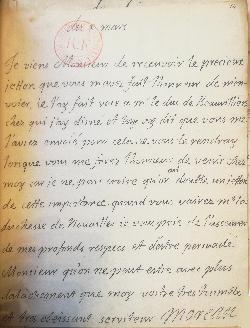 du x mars
Je viens Monsieur de recevoir le precieux
jetton que vous m'avez fait l'honneur de m'en
voier, je l'ay fait voir a m. le duc de Noailles
chez qui j'ay disné et luy ay dit que vous me
l'aviez envoié pour cela, je vous le rendray
lorsque vous me ferez l'honneur de venir chez
moy car je ne puis croire qu'on doutte, un jetton
de cette importance. quand vous verrez me la
duchesse de je vous prie de l'asseurer
de mes profonds respects et d'estre persuadé
Monsieur qu'on ne peut estre avec plus
d'attachement que moy vostre tres humble
et tres obeissant serviteur Moreau